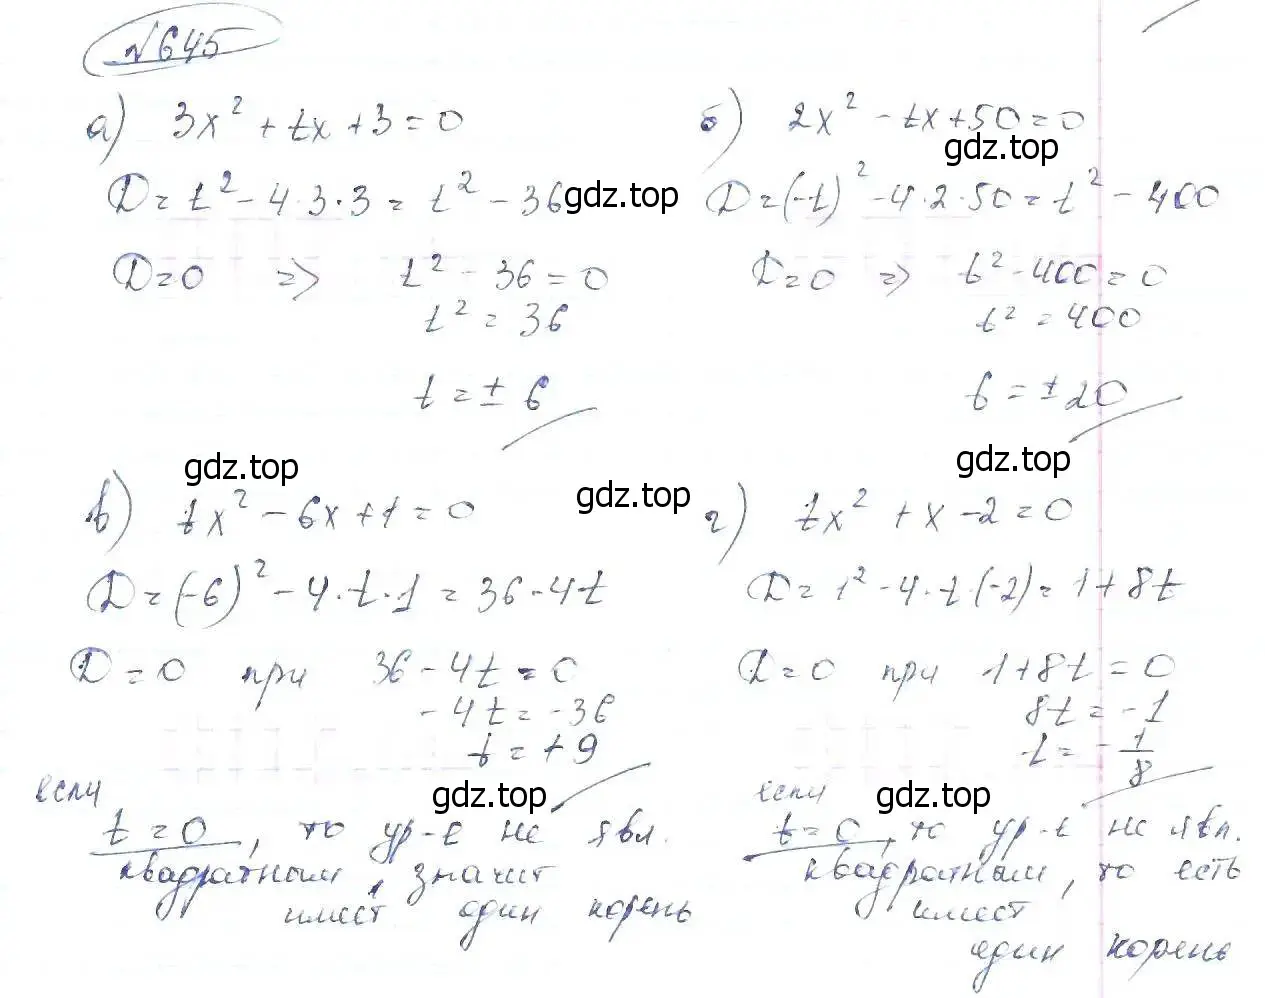 №645
а) 3x² + tx + 3 = 0
D = t² - 4·3·3 = t² - 36
D = 0 => t² - 36 = 0
t² = 36
t = ± 6
б) 2x² - tx + 50 = 0
gdz.top
gdz.top
D = (-t)² - 4·2·50 = t² - 400
D = 0 => t² - 400 = 0
t² = 400
t = ± 20
gdz.top
gdz.top
gdz.top
в) tx² - 6x + 1 = 0
D = (-6)² - 4·t·1 = 36 - 4t
D = 0 при 36 - 4t = 0
-4t = -36
t = +9
если
gdz.top
t = 0, то ур-е не явл.
квадратным, значит
имеет один корень
г) tx² + x - 2 = 0
D = 1² - 4·t·(-2) = 1 + 8t
D = 0 при 1 + 8t = 0
8t = -1
t = -1/8
если
gdz.top
t = 0, то ур-е не явл.
квадратным, то есть
имеет
один корень